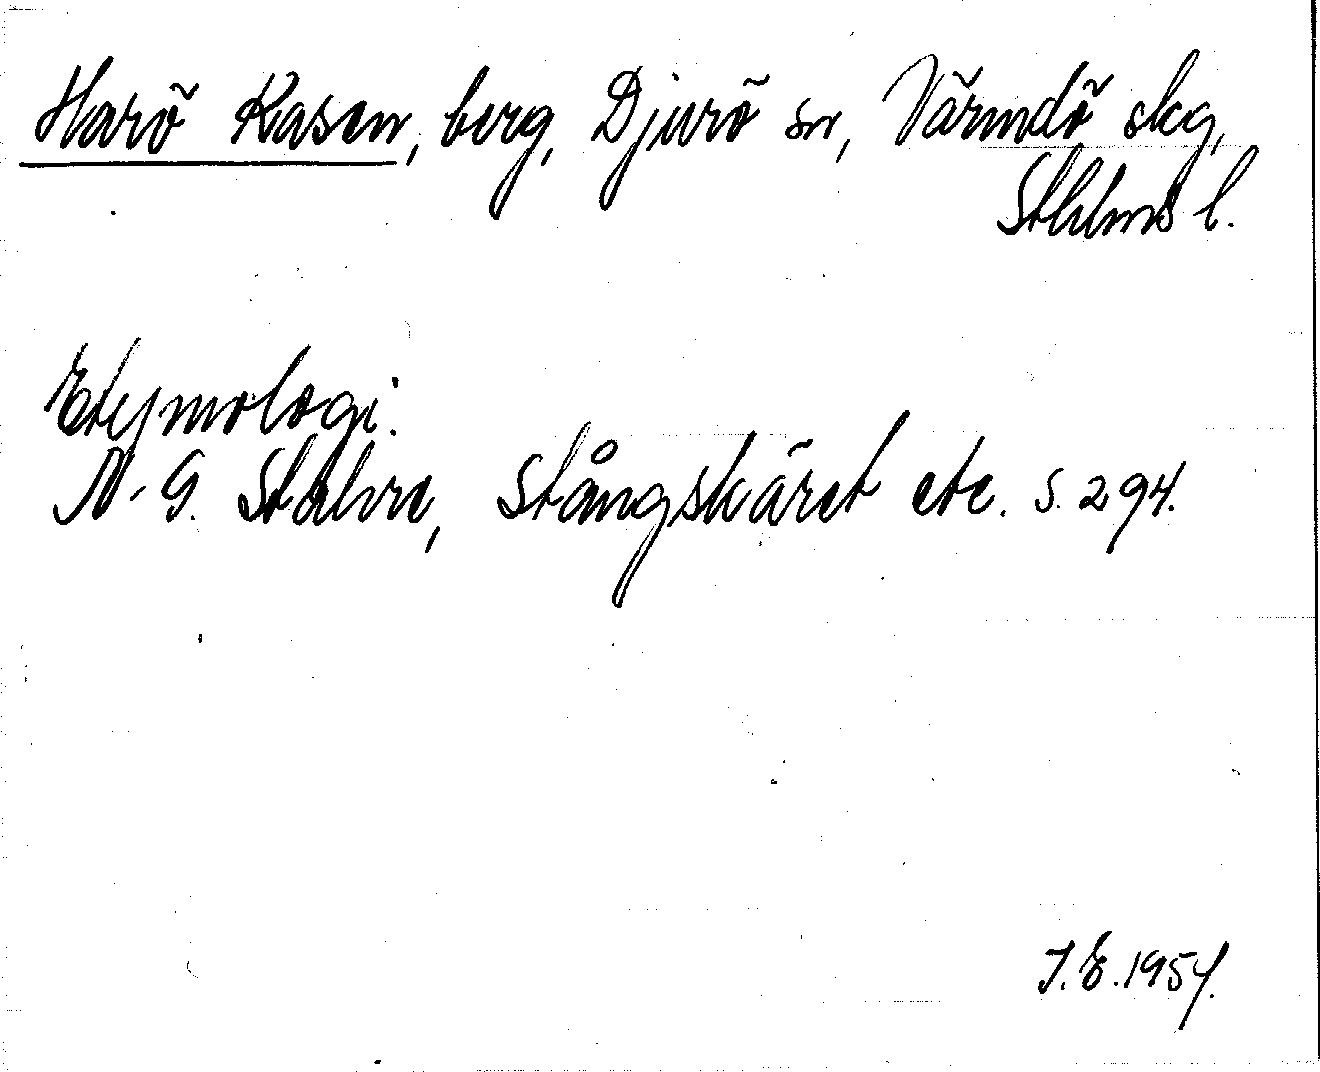 Harö Kasen, berg, Djurö sn, Värmdö skg,
Sthlms l.
Etymologi.
N.-G. Stahre, Stångskäret etc. s. 294.
I. E. 1954.